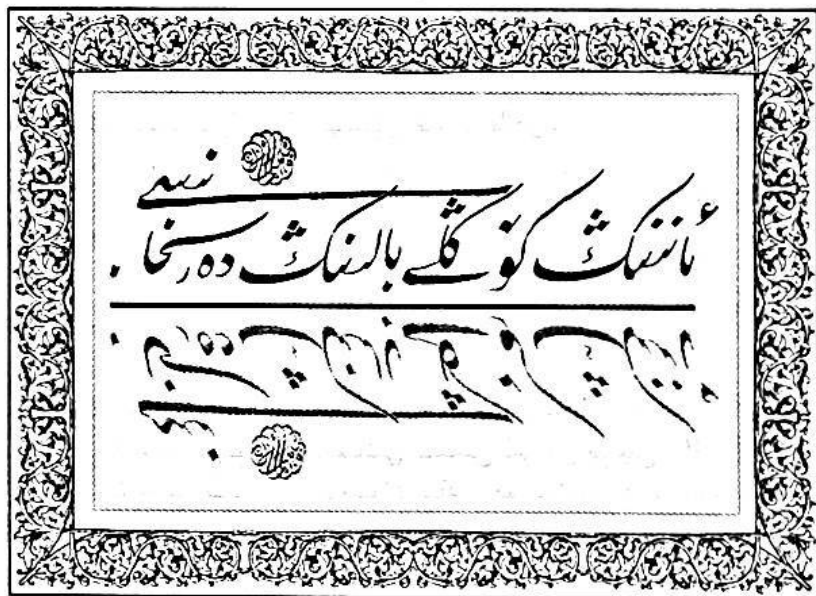 ئانىنىڭ كۆڭلى بالىنىڭ دەرسخانىسى